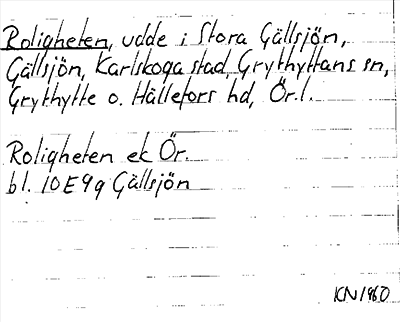 Roligheten, udde i Stora Gällsjön,
Gällsjön, Karlskoga stad, Grythyttans sn,
Grythytte o. Hällefors hd, Ör.l.
Roligheten ek Ör.
bl. 10E9g Gällsjön
KN1960